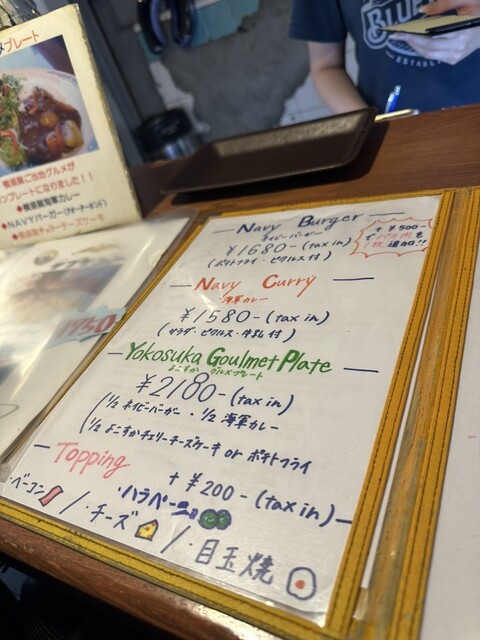 プレート
横須賀ご当地グルメが
ンプレートになりました！！
◆横須賀海軍カレー
◆NAVYバーガー(クオーターポンド)
◆横須賀チェリーチーズケーキ
1750
BLUE
ESTABL
Navy Burger
ネイビーバーガー
¥1680-(tax in)
(ポテトフライ・ピクルス付)
+¥500-
でパテ肉を
1枚追加!!
Navy Curry
海軍カレー
¥1580-(tax in)
(サラダ・ピクルス・牛乳付)
Yokosuka Goulmet Plate
よこすか グルメプレート
¥2180-(tax in)
(1/2 ネイビーバーガー・1/2 海軍カレー
(1/2 よこすかチェリーチーズケーキ or ポテトフライ
Topping
+¥200-(tax in)
・ベーコン / ・ハラペーニョ
・チーズ / ・目玉焼